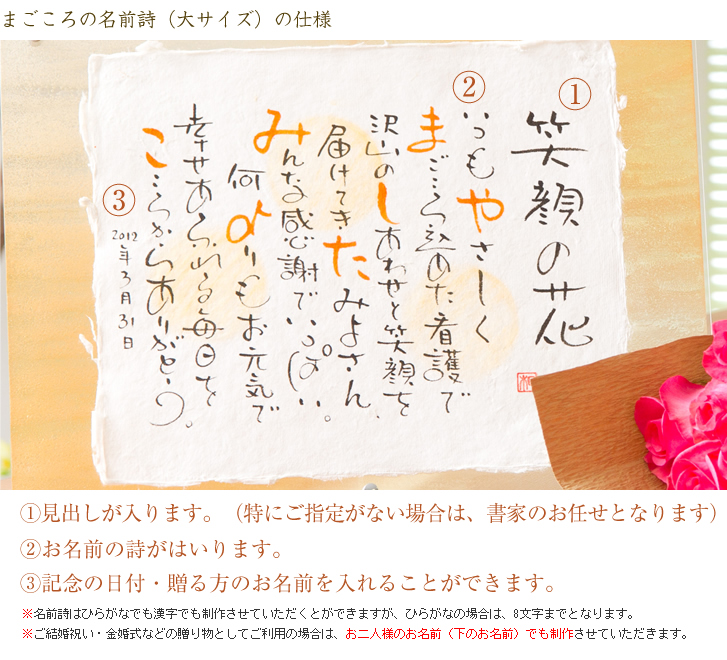 まごころの名前詩（大サイズ）の仕様
①
笑顔の花
②
いつもやさしく
まごころ込めた看護で
沢山のしあわせと笑顔を
届けてきたみよさん、
みんな感謝でいっぱい。
何よりもお元気で
幸せあふれる毎日を
こころからありがとう。
③
2012年3月31日
①見出しが入ります。（特にご指定がない場合は、書家のお任せとなります）
②お名前の詩がはいります。
③記念の日付・贈る方のお名前を入れることができます。
※名前詩はひらがなでも漢字でも制作させていただくとができますが、ひらがなの場合は、8文字までとなります。
※ご結婚祝い・金婚式などの贈り物としてご利用の場合は、お二人様のお名前（下のお名前）でも制作させていただきます。